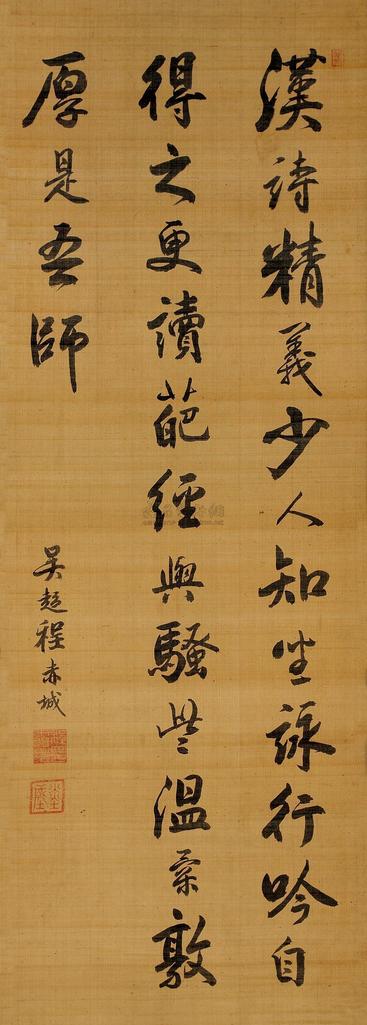 漢詩精義少人知坐詠行吟自
得之更讀葩經與騷些溫柔敦
厚是吾師
吳趨程赤城